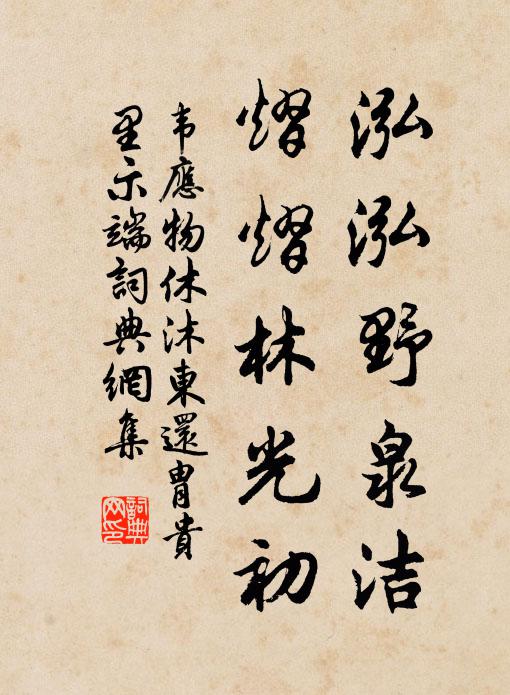 泓泓野泉洁
熠熠林光初
韦應物休沐東還胄貴
里示端詞典網集
詞典网印